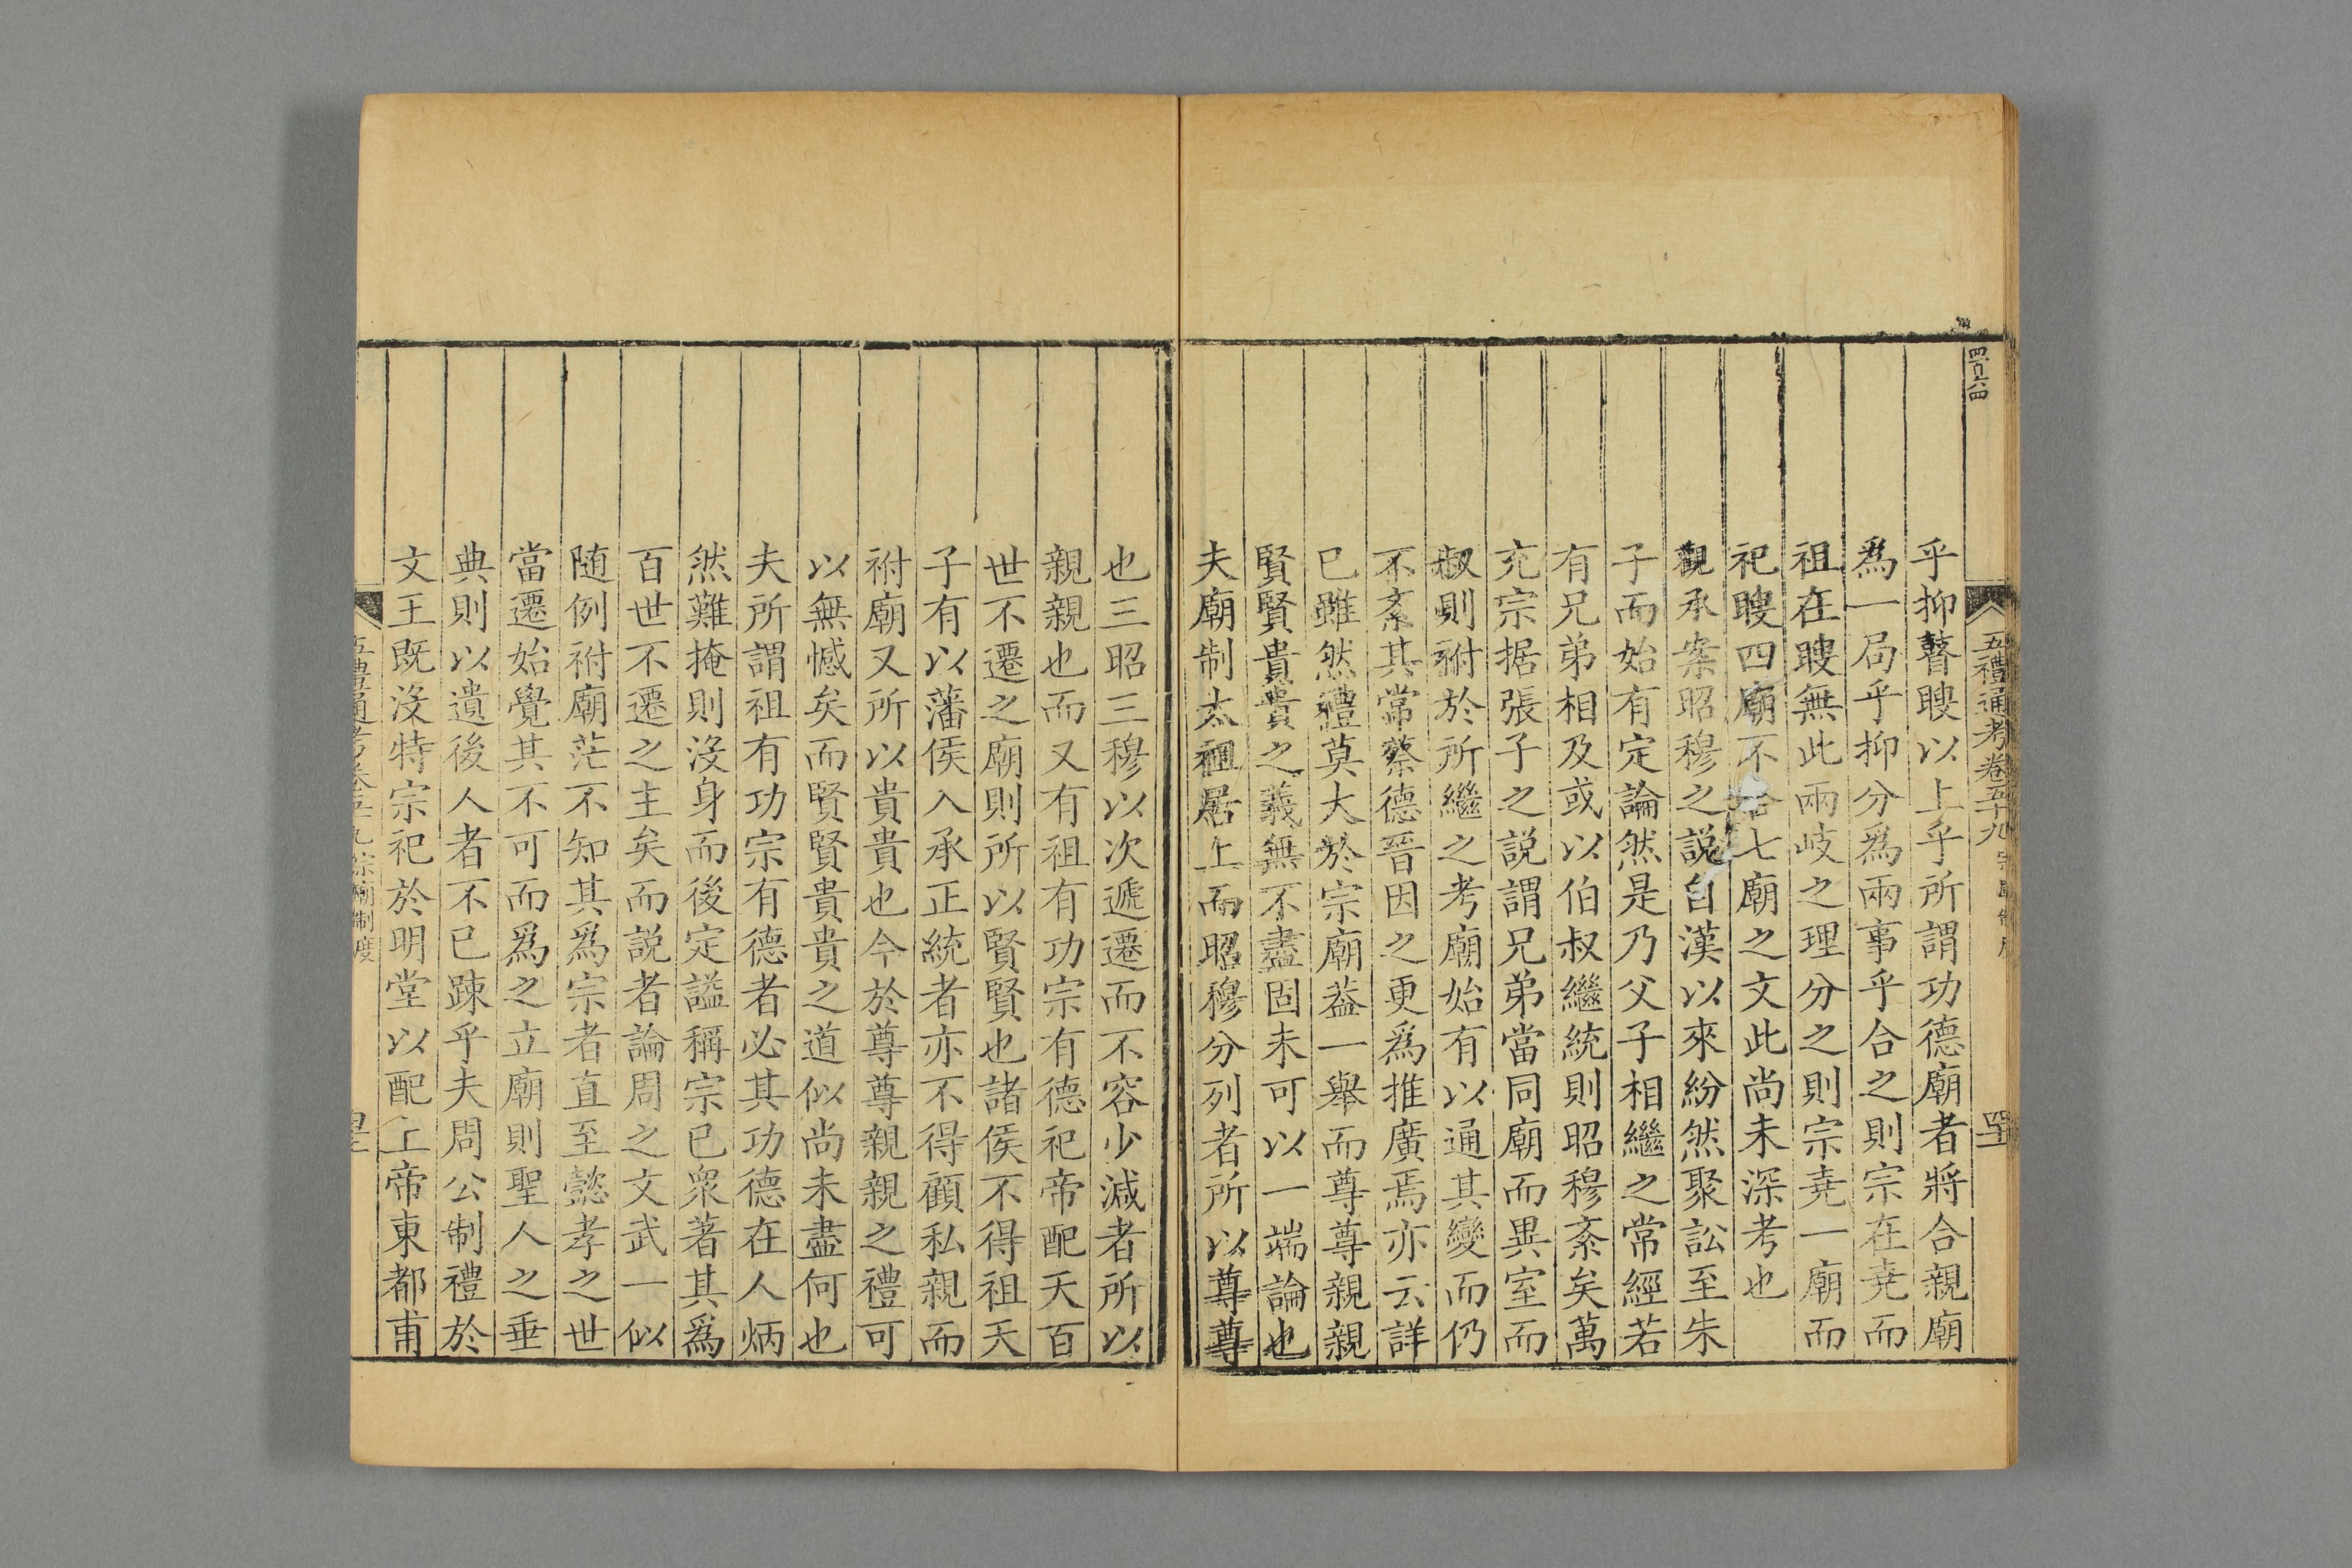 四百六四
五禮通考卷五十九 宗廟制度
乎抑瞽瞍以上乎所謂功德廟者將合親廟
爲一局乎抑分爲兩事乎合之則宗在堯而
祖在瞍無此兩岐之理分之則宗堯一廟而
祀瞍四廟不合七廟之文此尚未深考也
觀承案昭穆之説自漢以來紛然聚訟至朱
子而始有定論然是乃父子相繼之常經若
有兄弟相及或以伯叔繼統則昭穆紊矣萬
充宗据張子之説謂兄弟當同廟而異室而
叔則祔於所繼之考廟始有以通其變而仍
不紊其常蔡德晉因之更爲推廣焉亦云詳
已雖然禮莫大於宗廟葢一舉而尊尊親親
賢賢貴貴之義無不盡固未可以一端論也
夫廟制太祖居上而昭穆分列者所以尊尊
也三昭三穆以次遞遷而不容少減者所以
親親也而又有祖有功宗有德祀帝配天百
世不遷之廟則所以賢賢也諸侯不得祖天
子有以藩侯入承正統者亦不得顧私親而
祔廟又所以貴貴也今於尊尊親親之禮可
以無憾矣而賢賢貴貴之道似尚未盡何也
夫所謂祖有功宗有德者必其功德在人炳
然難掩則沒身而後定謚稱宗已衆著其爲
百世不遷之主矣而説者論周之文武一似
随例祔廟茫不知其爲宗者直至懿孝之世
當遷始覺其不可而爲之立廟則聖人之垂
典則以遺後人者不已踈乎夫周公制禮於
文王既沒特宗祀於明堂以配上帝東都甫
五禮通考卷五十九 宗廟制度